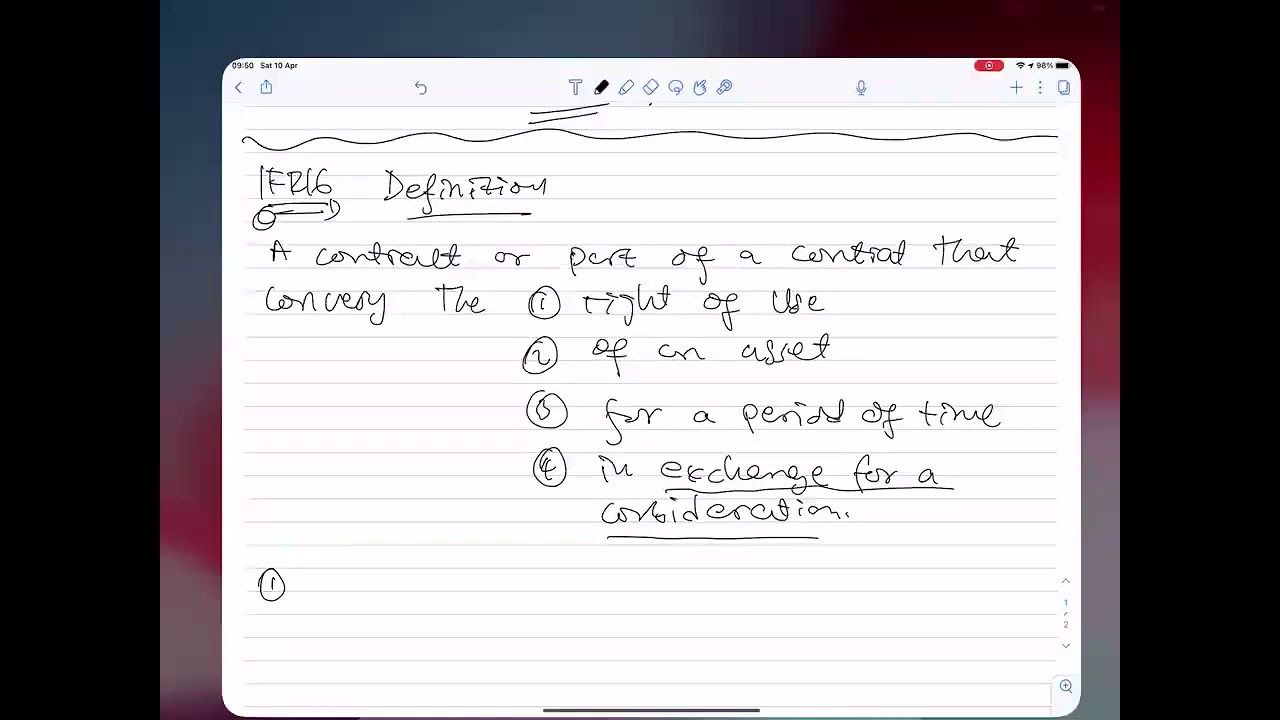 09:50 Sat 10 Apr
98%
IFR16 Definition
A contract or part of a contrat that
convery the ① right of use
② of an asset
③ for a period of time
④ in exchange for a
consideration.
①
1
/
2